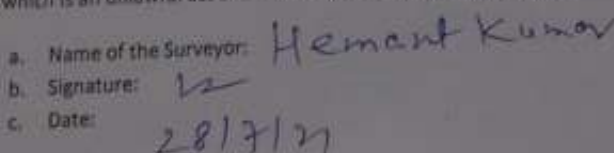 a. Name of the Surveyor: Hemant Kumar
b. Signature:
c. Date: 28/7/21